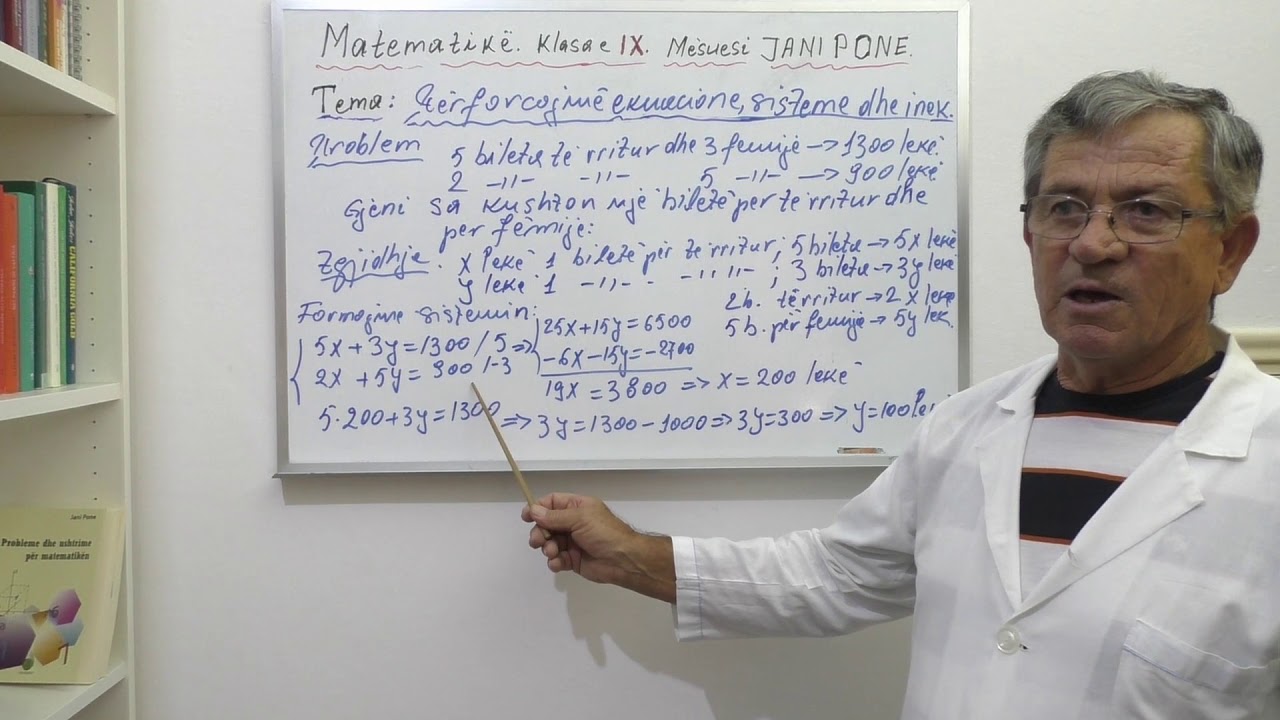 Matematikë. Klasa e IX. Mësuesi JANI PONE.
Tema: Përforcojmë ekuacione, sisteme dhe inek.
Problem 5 bileta të rritur dhe 3 femijë → 1300 lekë.
2 -,,- -,,- 5 -,,- → 900 lekë
Gjeni sa kushton një biletë për të rritur dhe
për fëmijë:
Zgjidhje. x lekë 1 biletë për të rritur; 5 bileta → 5x lekë
y lekë 1 -,,- - -,,- ,,- ; 3 bileta → 3y lekë
2b. të rritur → 2x lekë
5b. për femijë → 5y lek.
Formojmë sistemin:
5x + 3y = 1300 / 5 => 25x + 15y = 6500
2x + 5y = 900 / -3 -6x - 15y = -2700
19x = 3800 => x = 200 lekë
5·200 + 3y = 1300 => 3y = 1300 - 1000 => 3y = 300 => y = 100
Jani Pone
Probleme dhe ushtrime
për matematikën
CALIFORNIA GOLD